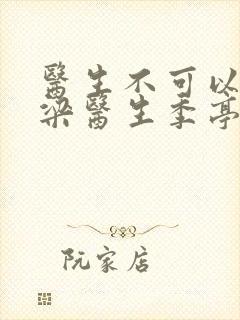 醫生不可以
梁醫生季亭
阮家店